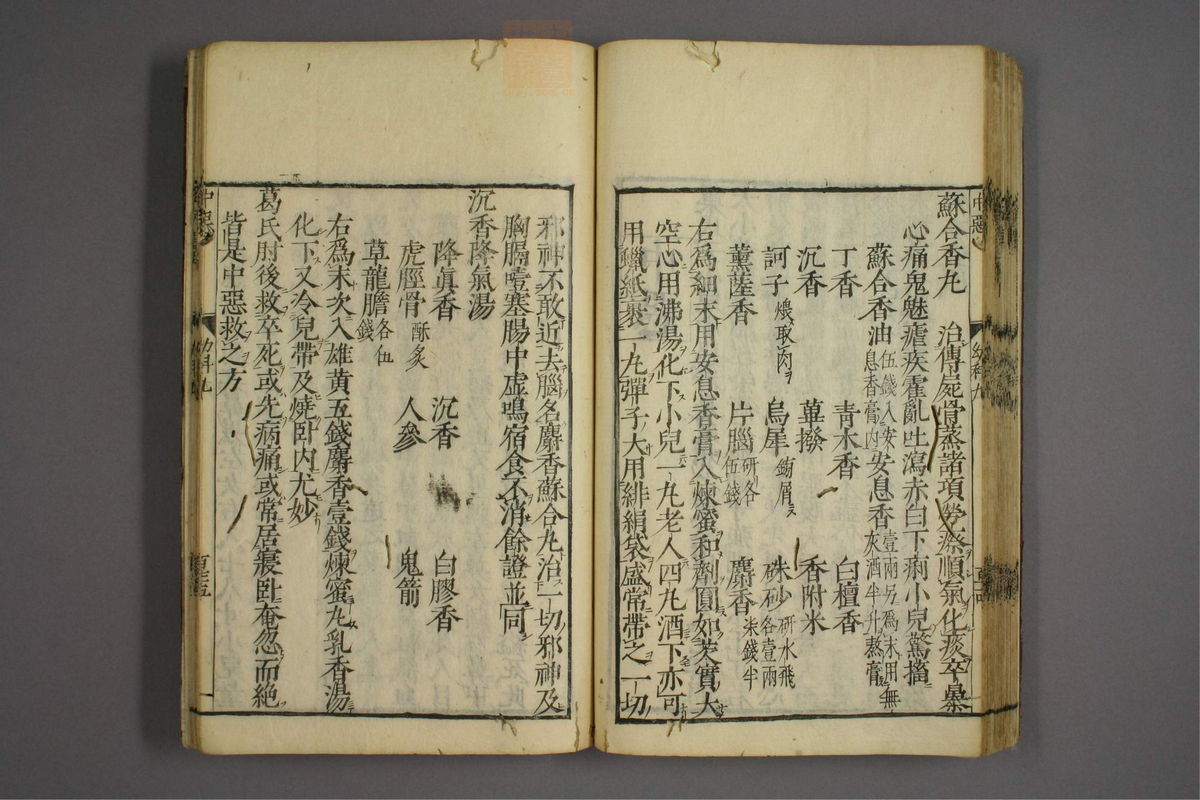 蘇合香丸　治傳屍骨蒸諸項勞瘵順氣化痰卒暴
心痛鬼魅瘧疾霍亂吐瀉赤白下痢小兒驚搐
蘇合香油 伍錢入安息香膏內 安息香 壹兩另爲末用無灰酒半升蒸膏
丁香　青木香　白檀香
沉香　蓽撥　香附米
訶子 煨取肉　烏犀 鎊屑　硃砂 研水飛各壹兩
薰薩香　片腦 研各伍錢　麝香 柒錢半
右爲細末用安息香膏入煉蜜和劑圓如芡實大
空心用沸湯化下小兒一丸老人四丸酒下亦可
用蠟紙裹一丸彈子大用緋絹袋盛常帶之一切
邪神不敢近去腦名麝香蘇合丸治一切邪神及
胸膈噎塞腸中虛鳴宿食不消餘證並同
沉香降氣湯
降眞香　沉香　白膠香
虎脛骨 酥炙　人參　鬼箭
草龍膽 各伍錢
右爲末次入雄黃五錢麝香壹錢煉蜜丸乳香湯
化下又令兒帶及燒臥內尤妙
葛氏肘後救卒死或先病痛或常居寢臥奄忽而絶
皆是中惡救之方
中惡
幼科九